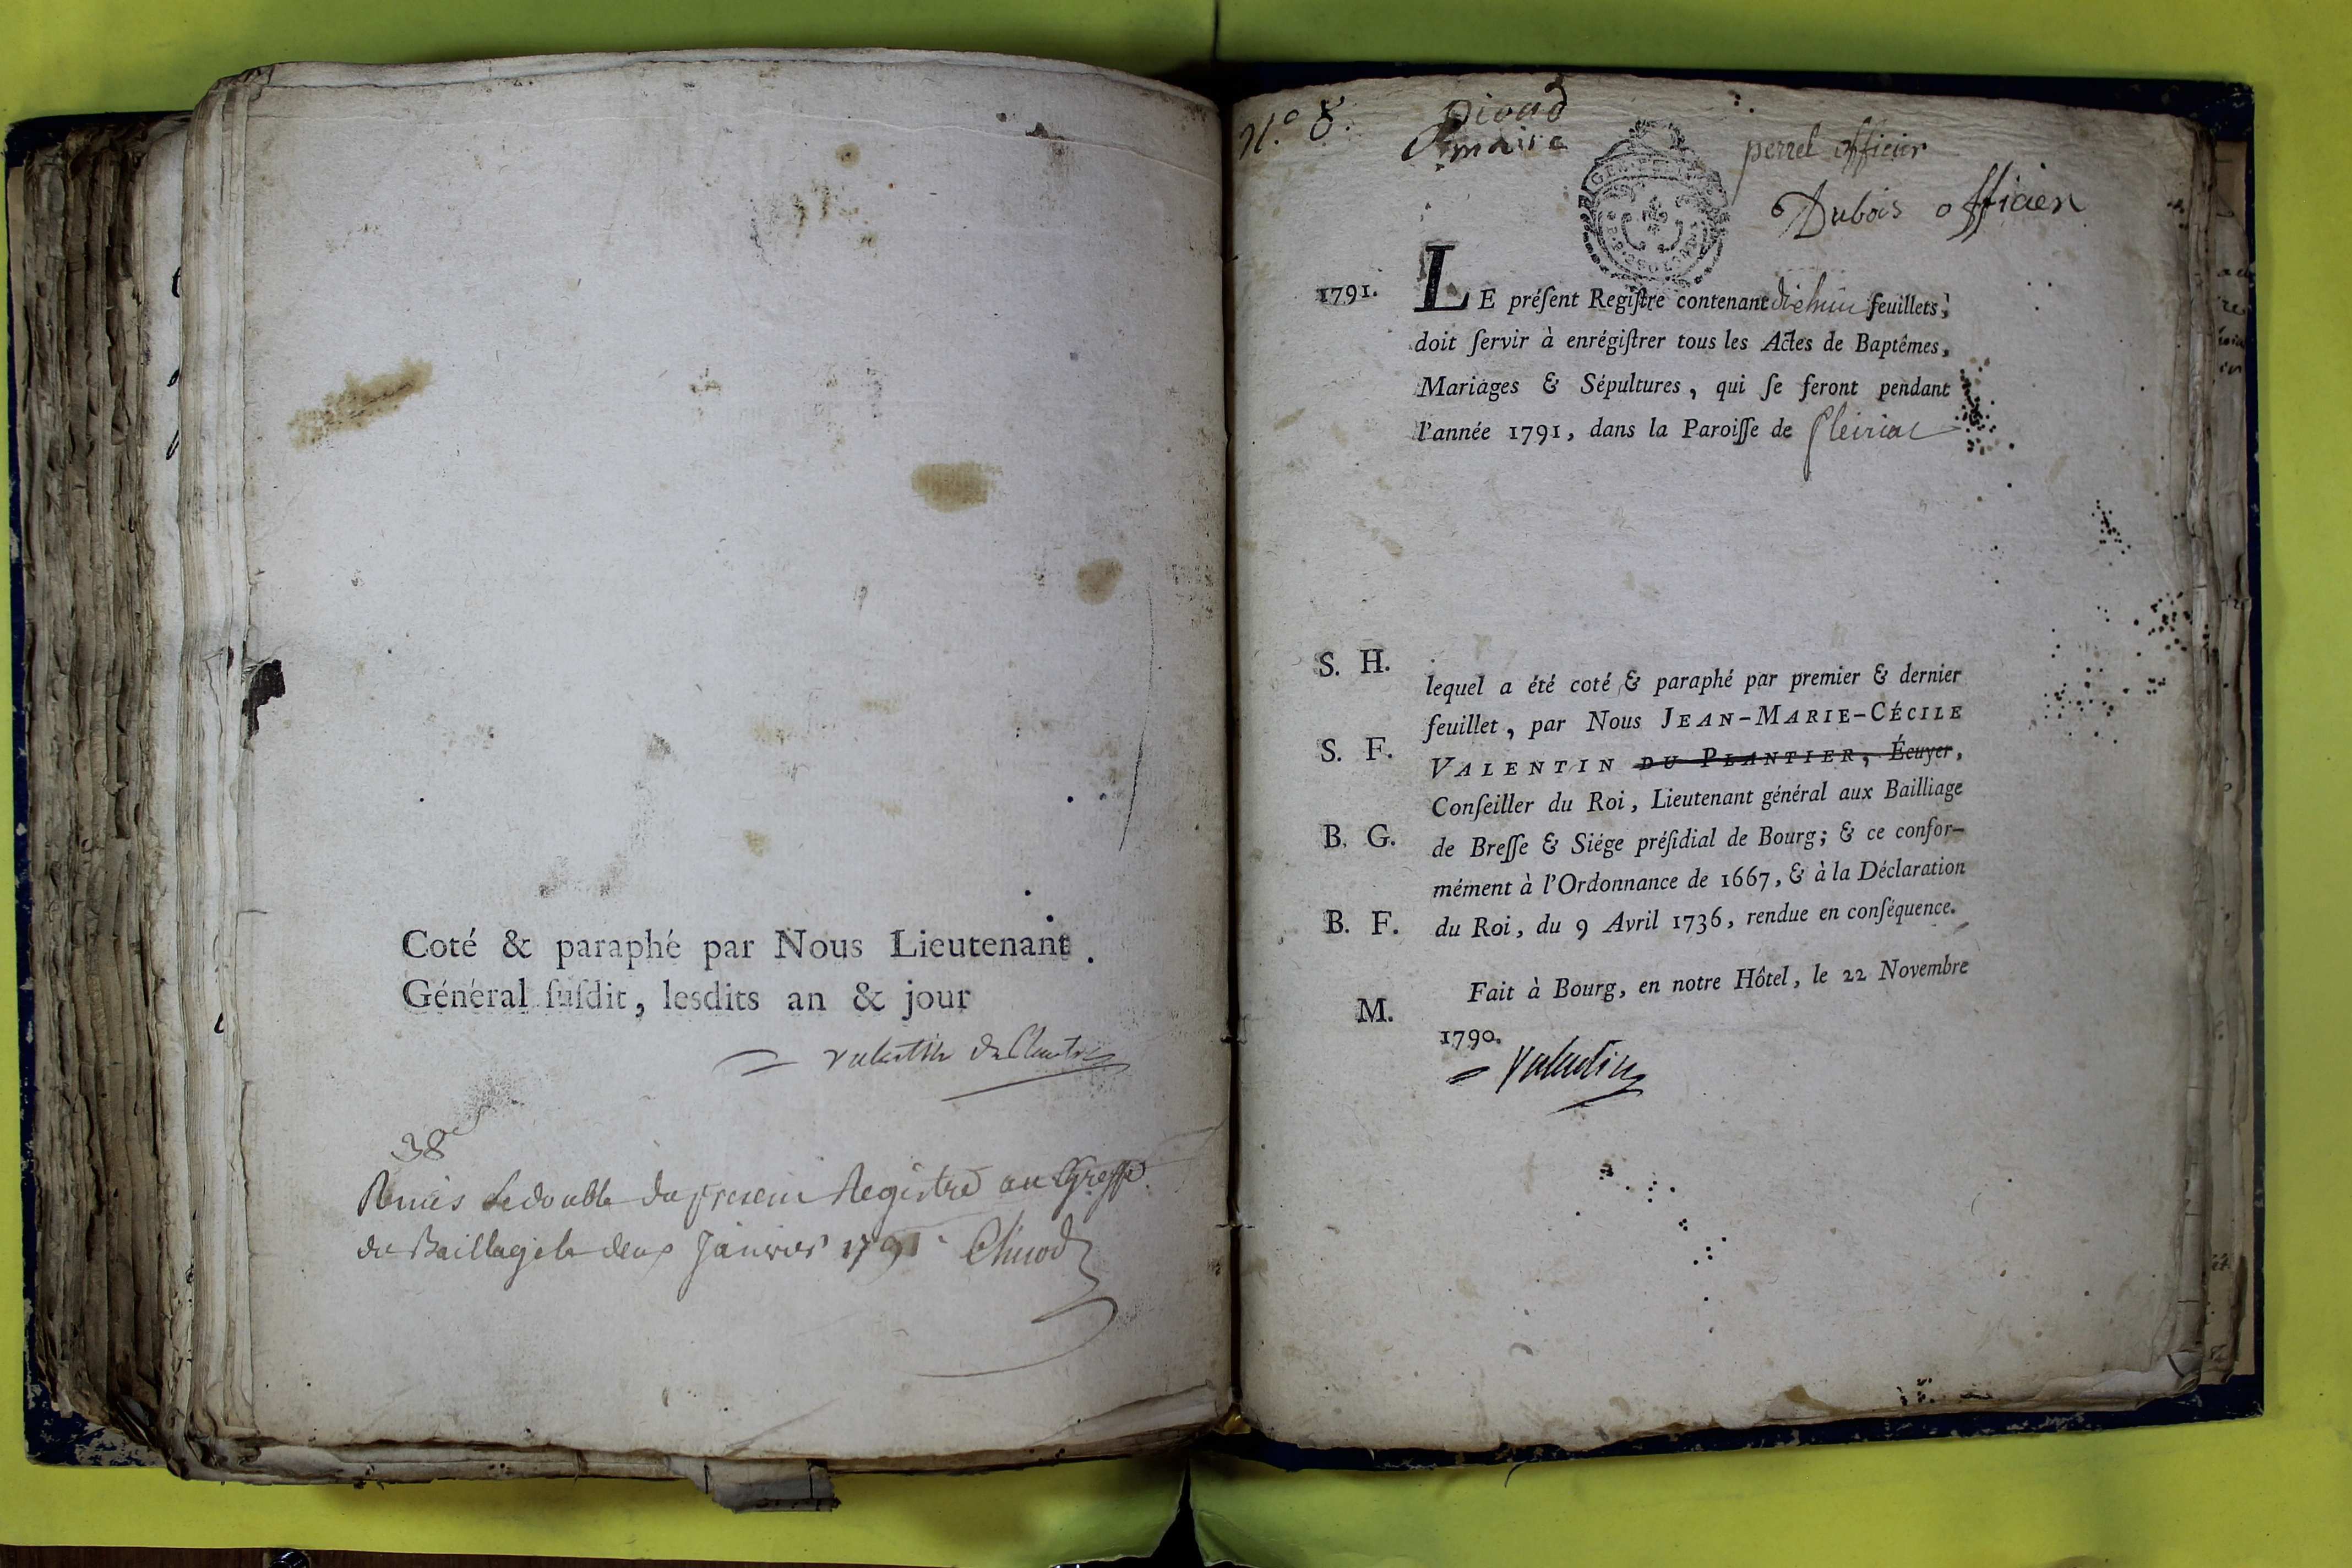 Coté & paraphé par Nous Lieutenant
Général ſuſdit, lesdits an & jour
valentin du Plantier
38
Remis Le double du present Registre au Greffe
du Baillage le deux Janvier 1791
N.o 8.
maire
perret officier
Dubois officier
1791.
LE préſent Regiſtre contenant dix huit feuillets,
doit ſervir à enrégiſtrer tous les Actes de Baptêmes,
Mariages & Sépultures, qui ſe feront pendant
l'année 1791, dans la Paroiſſe de pleiriat
S. H.
lequel a été coté & paraphé par premier & dernier
feuillet, par Nous JEAN-MARIE-CÉCILE
S. F.
VALENTIN DU PLANTIER, Écuyer,
Conſeiller du Roi, Lieutenant général aux Bailliage
B. G.
de Breſſe & Siége préſidial de Bourg; & ce confor-
mément à l'Ordonnance de 1667, & à la Déclaration
B. F.
du Roi, du 9 Avril 1736, rendue en conſéquence.
Fait à Bourg, en notre Hôtel, le 22 Novembre
M.
1790.
Valentin